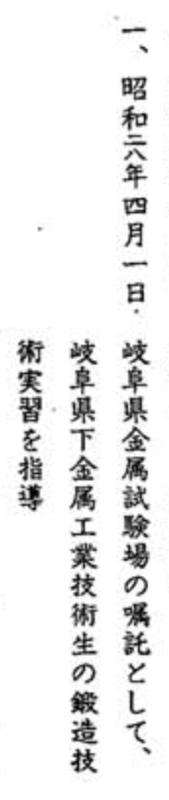 一、昭和二八年四月一日 岐阜県金属試験場の嘱託として、
岐阜県下金属工業技術生の鍛造技
術実習を指導